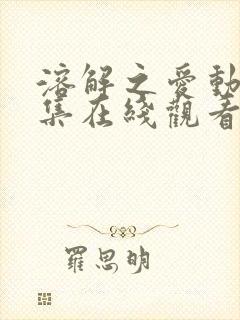 溶解之愛動
集在綫觀看
羅思明